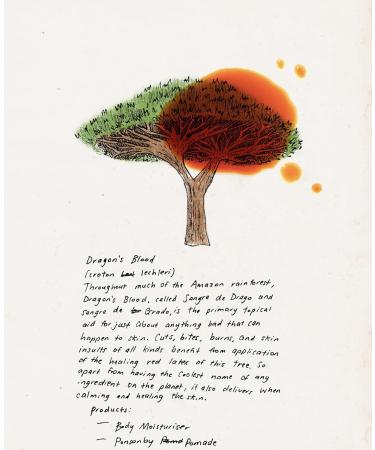 Dragon's Blood
(croton lechleri)
Throughout much of the Amazon rainforest,
Dragon's Blood, called Sangre de Drago and
Sangre de Grado, is the primary topical
aid for just about anything bad that can
happen to skin. Cuts, bites, burns, and skin
insults of all kinds benefit from application
of the healing red latex of this tree. So
apart from having the coolest name of any
ingredient on the planet, it also delivers when
calming and healing the skin.
products:
— Body Moisturiser
— Ponsonby Pomade